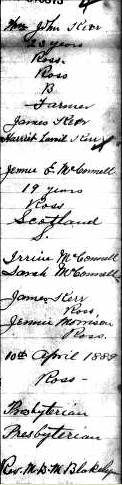 Wm John Kerr
23 years
Ross.
Ross
B.
Farmer
James Kerr
Harriet Kerr
Jennie E. McConnell
19 years
Ross
Scotland
S.
McConnell
Sarah McConnell
James Kerr
Ross
Jennie Morrison
Ross.
10th April 1889
Ross-
Presbyterian
Presbyterian
Rev. M.D.M Blakely